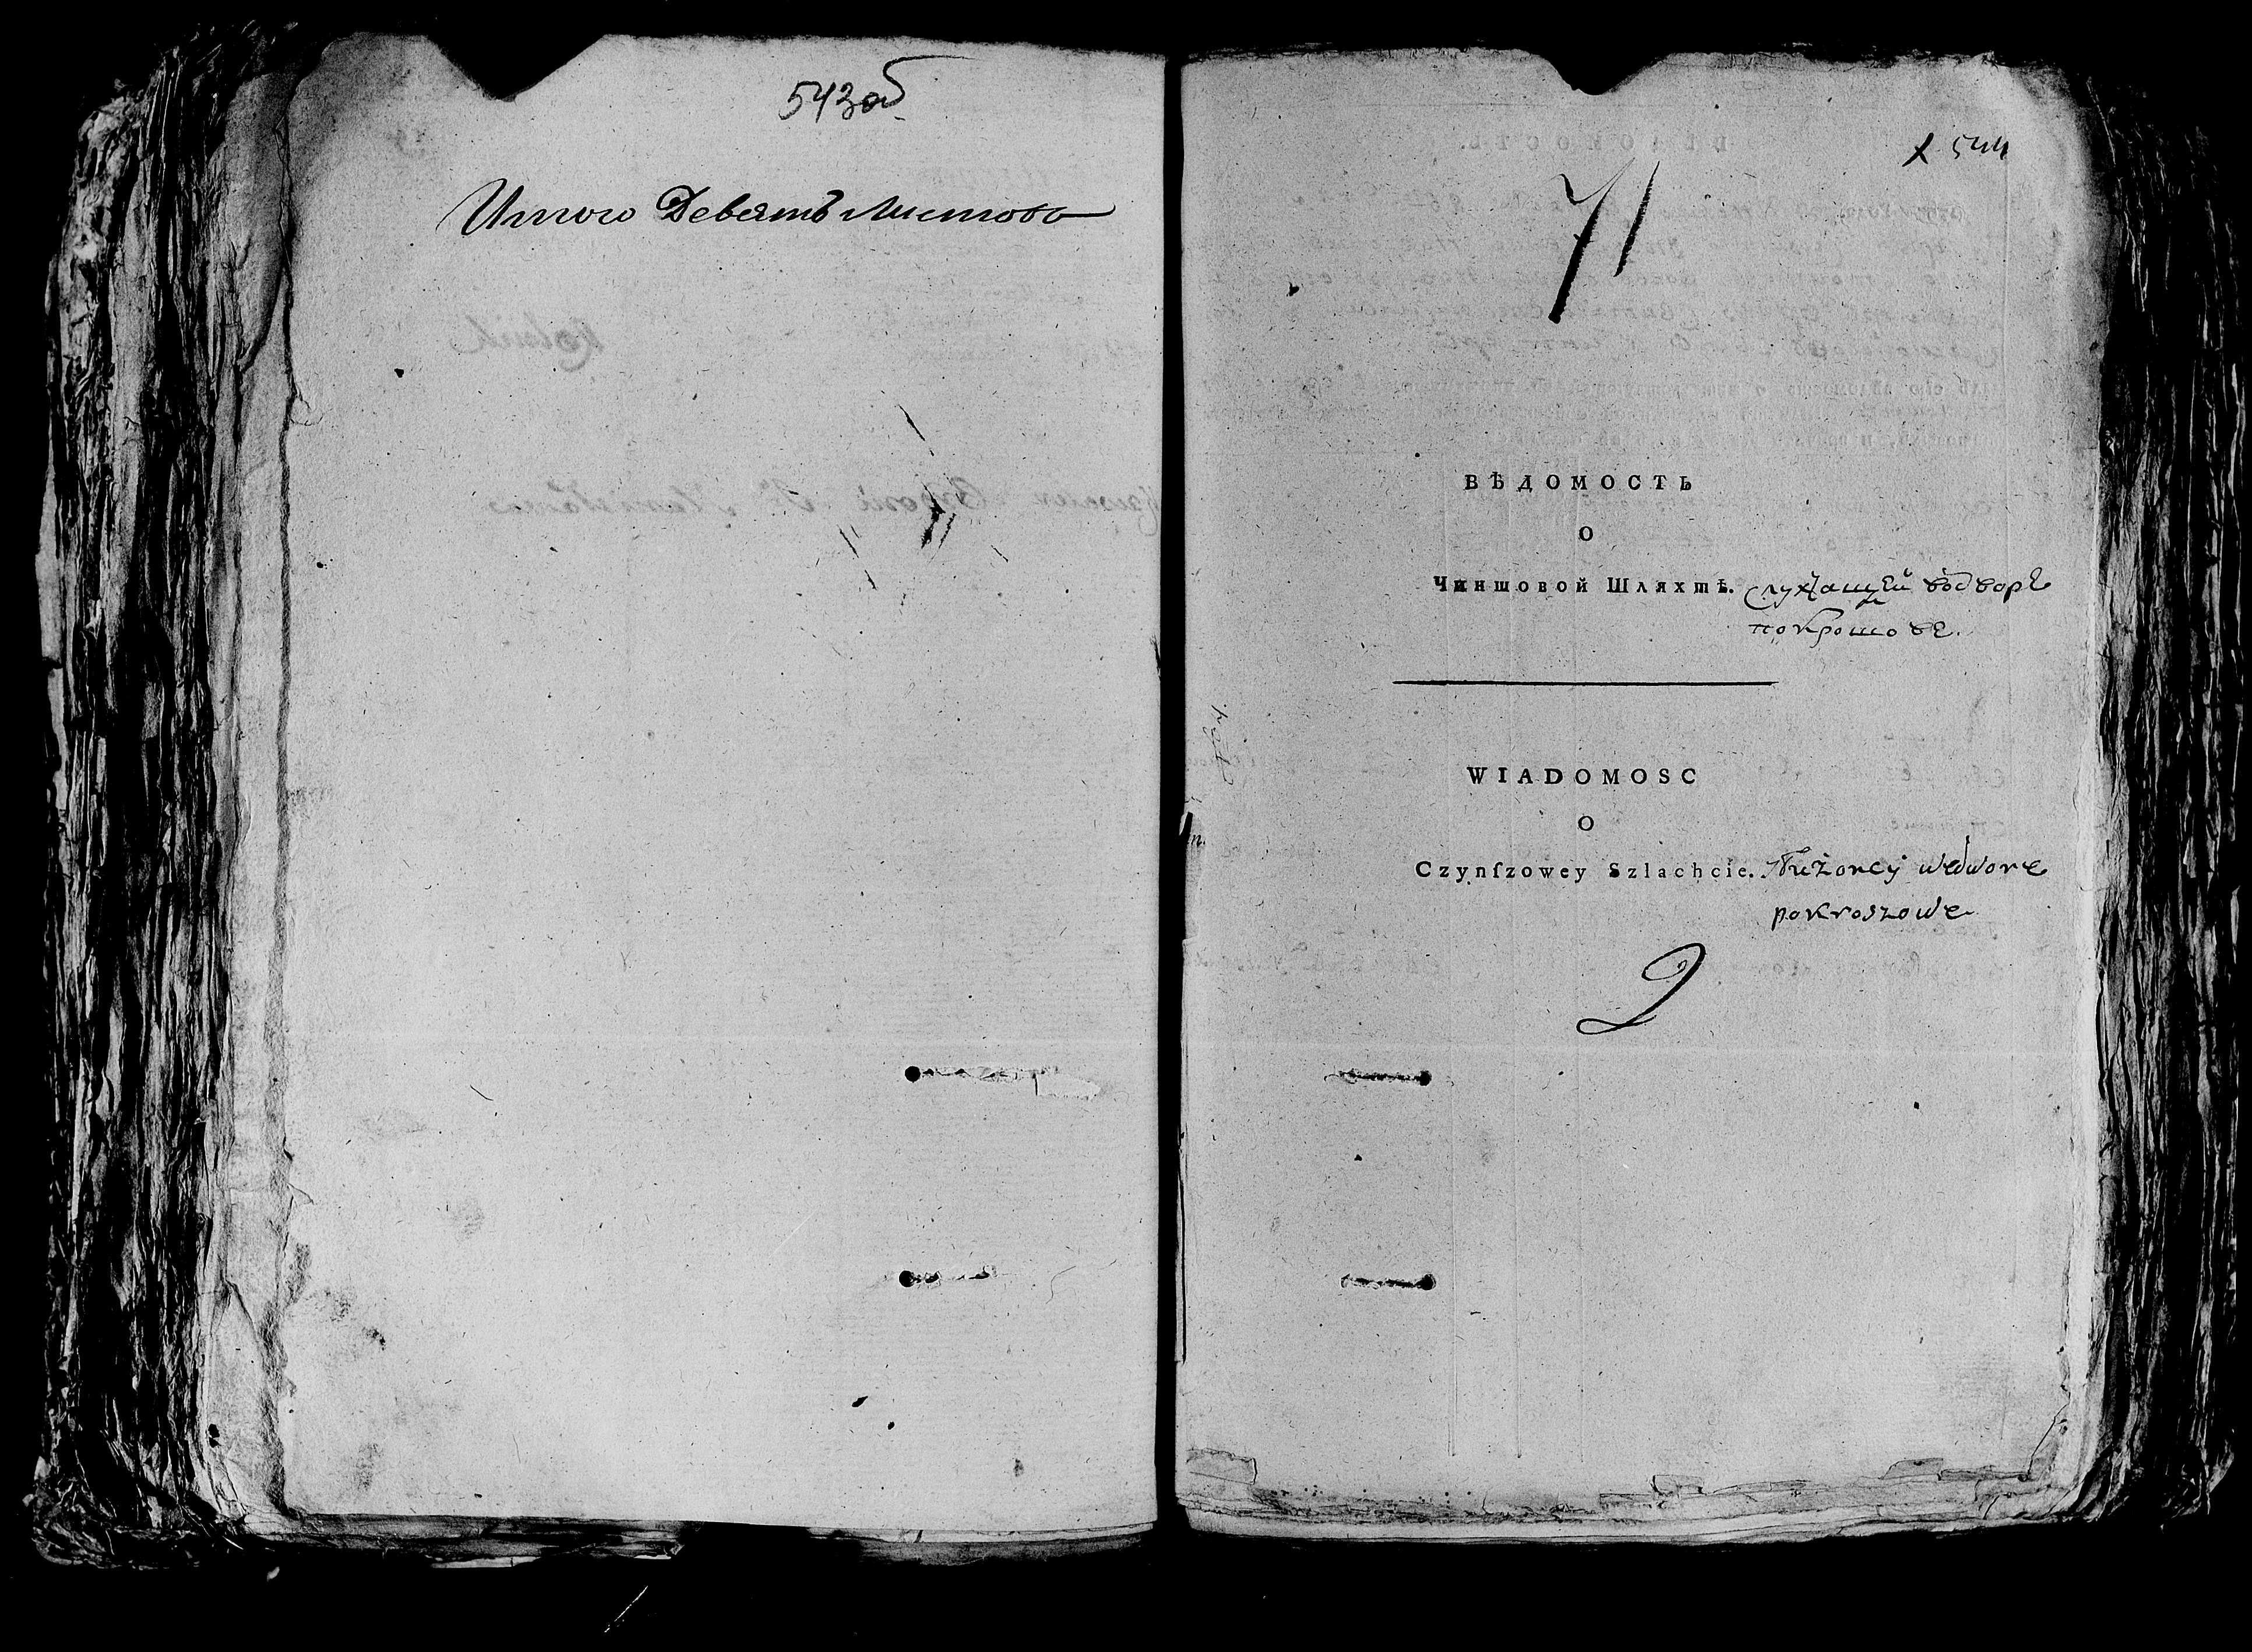 543об
Итого Девять Листовъ
х 544
71
ВѢДОМОСТЬ
О
Чиншовой Шляхтѣ. служащей водворе
покрошове.
WIADOMOSC
O
Czynſzowey Szlachcie. służoncÿ wedwore
pokroszowe
2